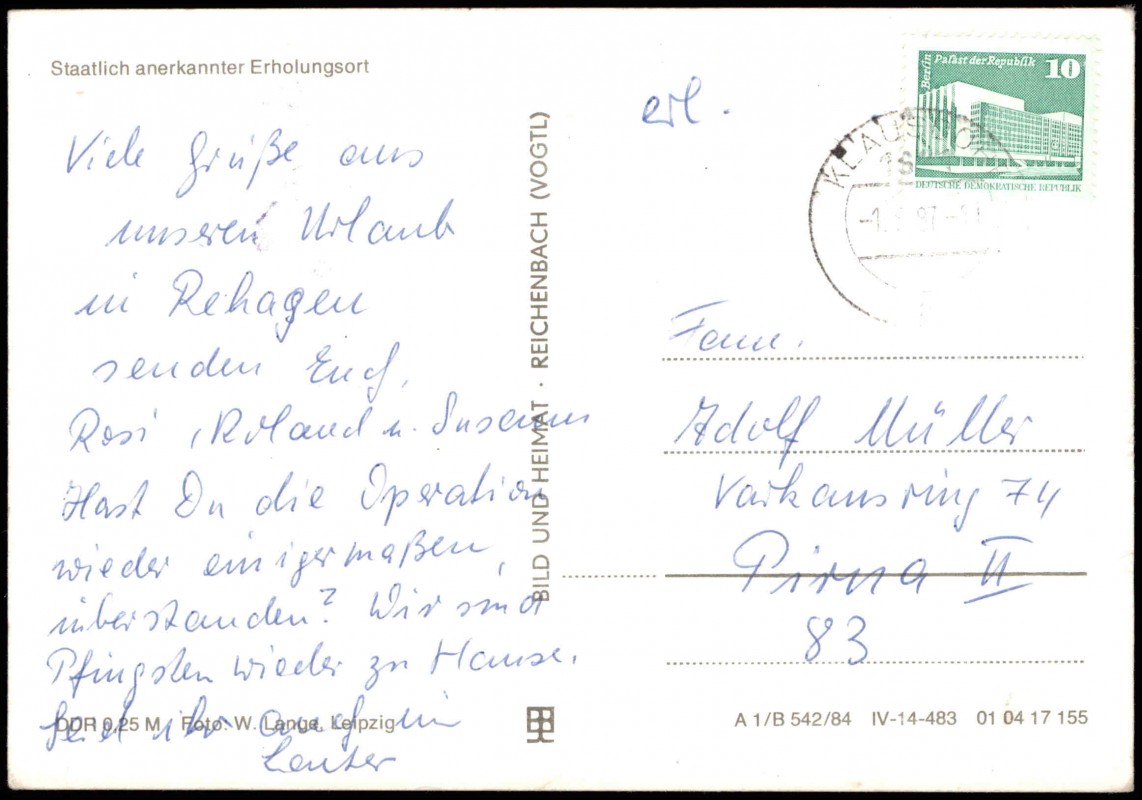 Staatlich anerkannter Erholungsort
Viele Grüße aus
unseren Urlaub
in Rehagen
senden Euch,
Rosi, Roland u. Susann
Hast Du die Operation
wieder einigermaßen,
überstanden? Wir sind
Pfingsten wieder zu Hause.
Seid ihr auch in
DDR 0,25 M Foto: W. Lange, Leipzig
BILD UND HEIMAT · REICHENBACH (VOGTL)
erl.
Berlin Palast der Republik 10
DEUTSCHE DEMOKRATISCHE REPUBLIK
Fam.
Adolf Müller
Varkausring 74
Pirna II
83
A 1/B 542/84 IV-14-483 01 04 17 155